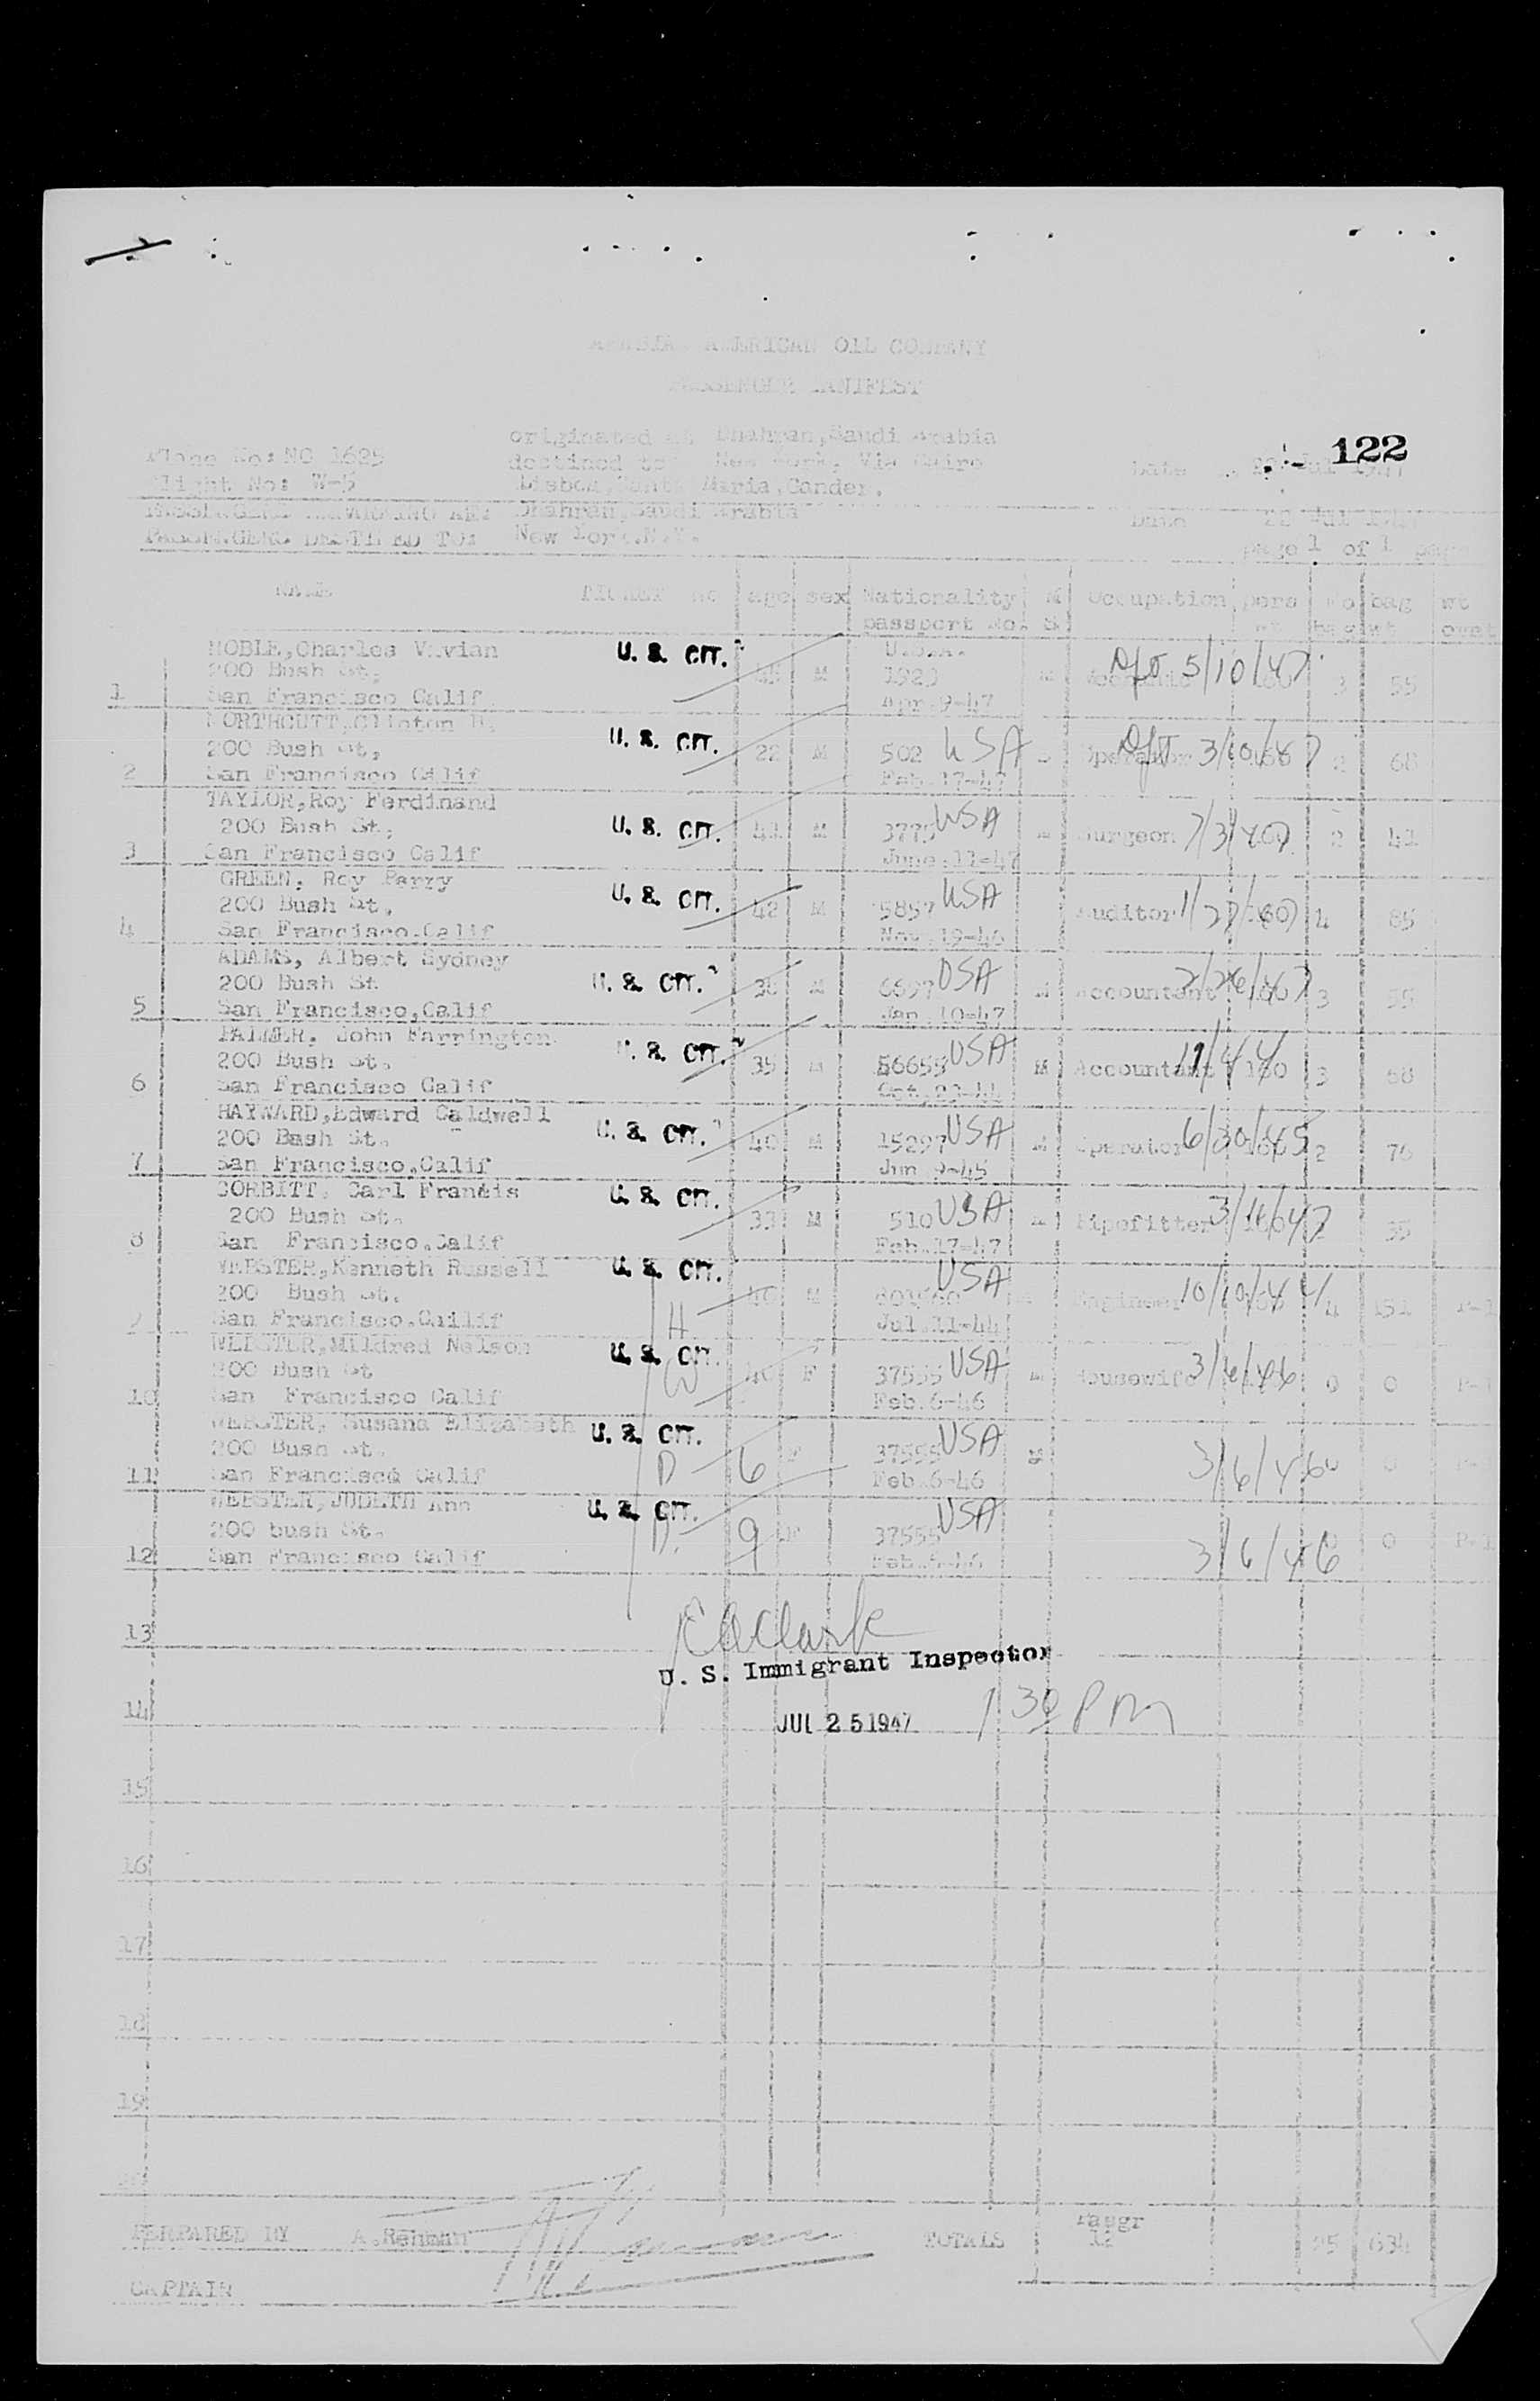 ARABIAN AMERICAN OIL COMPANY
PASSENGER MANIFEST
122
originated at Dhahran,Saudi Arabia
Plane No: NC 1625 destined to New York, Via Cairo Date
Flight No: W-5 Lisbon,Santa Maria,Gander.
Dhahran,Saudi Arabia Date 22 Jul
PASSENGERS DESTINED TO: New York.N.Y. page 1 of 1 page
NAME TICKET no age sex Nationality M Occupation pers No bag wt
passport No. S wt bags wt
NOBLE,Charles Vivian U. S. CIT. U.S.A.
200 Bush St, M 1929 5/10/47 3 55
1 San Francisco Calif Apr.9-47
NORTHCUTT,Clinton B.
200 Bush St, U. S. CIT. 22 M 502 USA Operator 2 68
2 San Francisco Calif Feb.17-47
TAYLOR,Roy Ferdinand
200 Bush St, U. S. CIT. 41 M 3775 USA Surgeon 2 41
3 San Francisco Calif June.11-47
GREEN, Roy Parry
200 Bush St. U. S. CIT. 42 M 5857 USA Auditor 4 85
4 San Francisco.Calif Nov.19-46
ADAMS, Albert Sydney
200 Bush St U. S. CIT. M 6697 USA Accountant 2/26/47 3 55
5 San Francisco,Calif Jan.10-47
PALMER. John Farrington
200 Bush St. U. S. CIT. 35 M 56655 USA M Accountant 3 68
6 San Francisco Calif Oct.23-44
HAYWARD,Edward Caldwell
200 Bush St. U. S. CIT. 40 M 15297 USA M Operator 6/30/45 2 76
7 San Francisco.Calif Jun 9-45
CORBITT. Carl Francis
200 Bush St. U. S. CIT. 33 M 510 USA Pipefitter 35
8 San Francisco.Calif Feb.17-47
WEBSTER,Kenneth Russell
200 Bush St. U. S. CIT. 40 M USA Engineer 10/10/44 4 151 P-1
San Francisco.Calif H Jul.11-44
WEBSTER,Mildred Nelson
200 Bush St U. S. CIT. 40 F 37555 USA Housewife 3/6/46 0 0
10 San Francisco Calif W Feb.6-46
WEBSTER, Susana Elizabeth
200 Bush St. U. S. CIT. F 37555 USA
11 San Francisco Calif D 6 Feb.6-46 3/6/46 0
WEBSTER, JUDETH Ann
200 bush St. U. S. CIT. F 37555 USA 0 P-1
12 San Francisco Calif D. 9 Feb.6-46 3/6/46
13
U. S. Immigrant Inspector
14 JUL 25 1947 1 30 PM
15
16
17
18
19
PERPARED BY A.Rehman TOTALS Pasgr 12 25 634
CAPTAIN